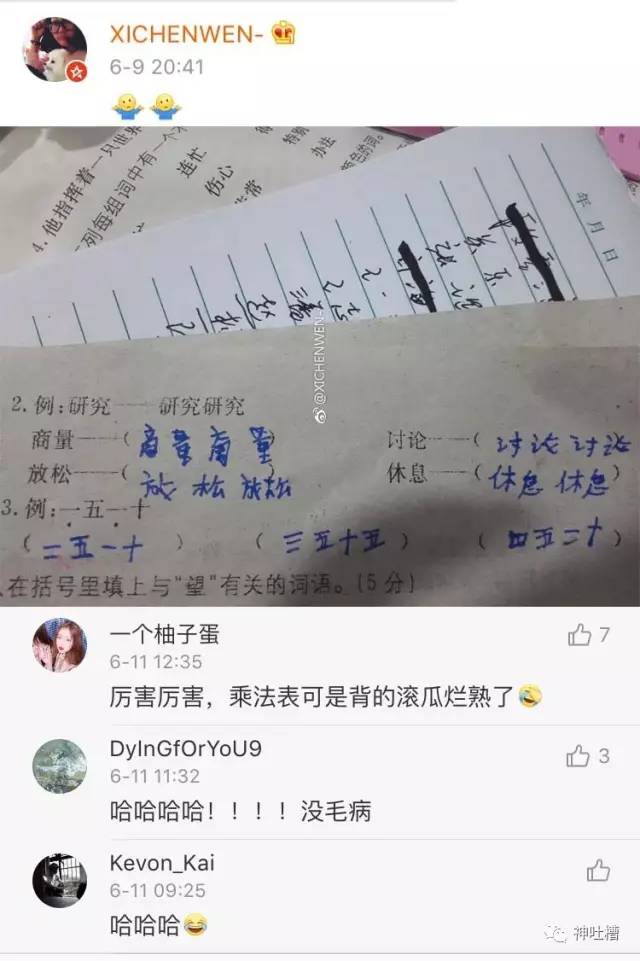 XICHENWEN-
6-9 20:41
4.他指挥着一只世界
列每组词中有一个不
连忙
伤心
特别
办法
年 月 日
@XICHENWEN-
2.例:研究——研究研究
商量——(商量商量) 讨论——(讨论讨论)
放松——(放松放松) 休息——(休息休息)
3.例:一五一十
(二五一十) (三五十五) (四五二十)
在括号里填上与“望”有关的词语。(5分)
一个柚子蛋
7
6-11 12:35
厉害厉害，乘法表可是背的滚瓜烂熟了
DyInGfOrYoU9
3
6-11 11:32
哈哈哈哈！！！！没毛病
Kevon_Kai
6-11 09:25
哈哈哈
神吐槽